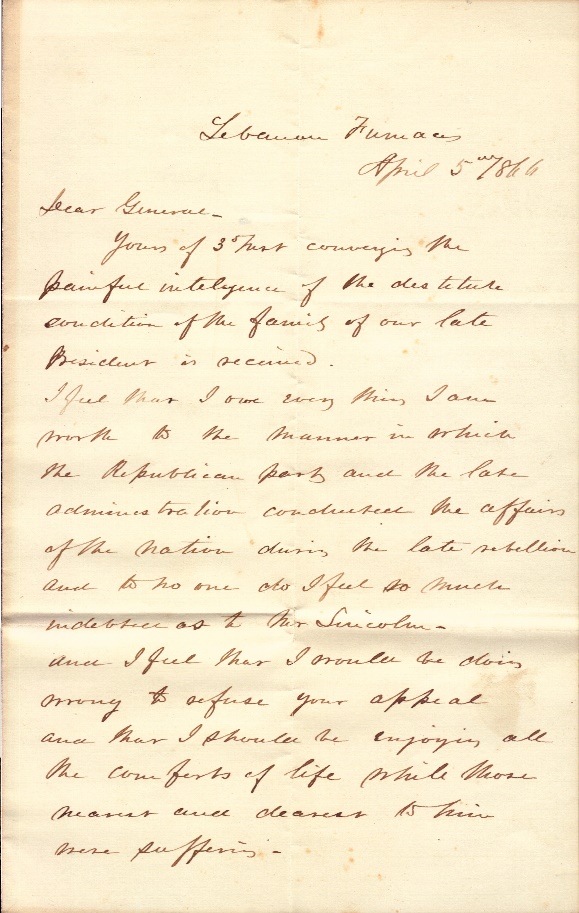 Lebanon Furnaces
April 5th 1866
Dear General -
Yours of 3d Inst conveying the
painful inteligence of the destitute
condition of the family of our late
President is received.
I feel that I owe every thing I am
worth to the manner in which
the Republican party and the late
administration conducted the affairs
of the nation during the late rebellion
and to no one do I feel so much
indebted as to Mr Lincoln -
and I feel that I would be doing
wrong to refuse your appeal
and that I should be enjoying all
the comforts of life while those
nearest and dearest to him
were suffering -